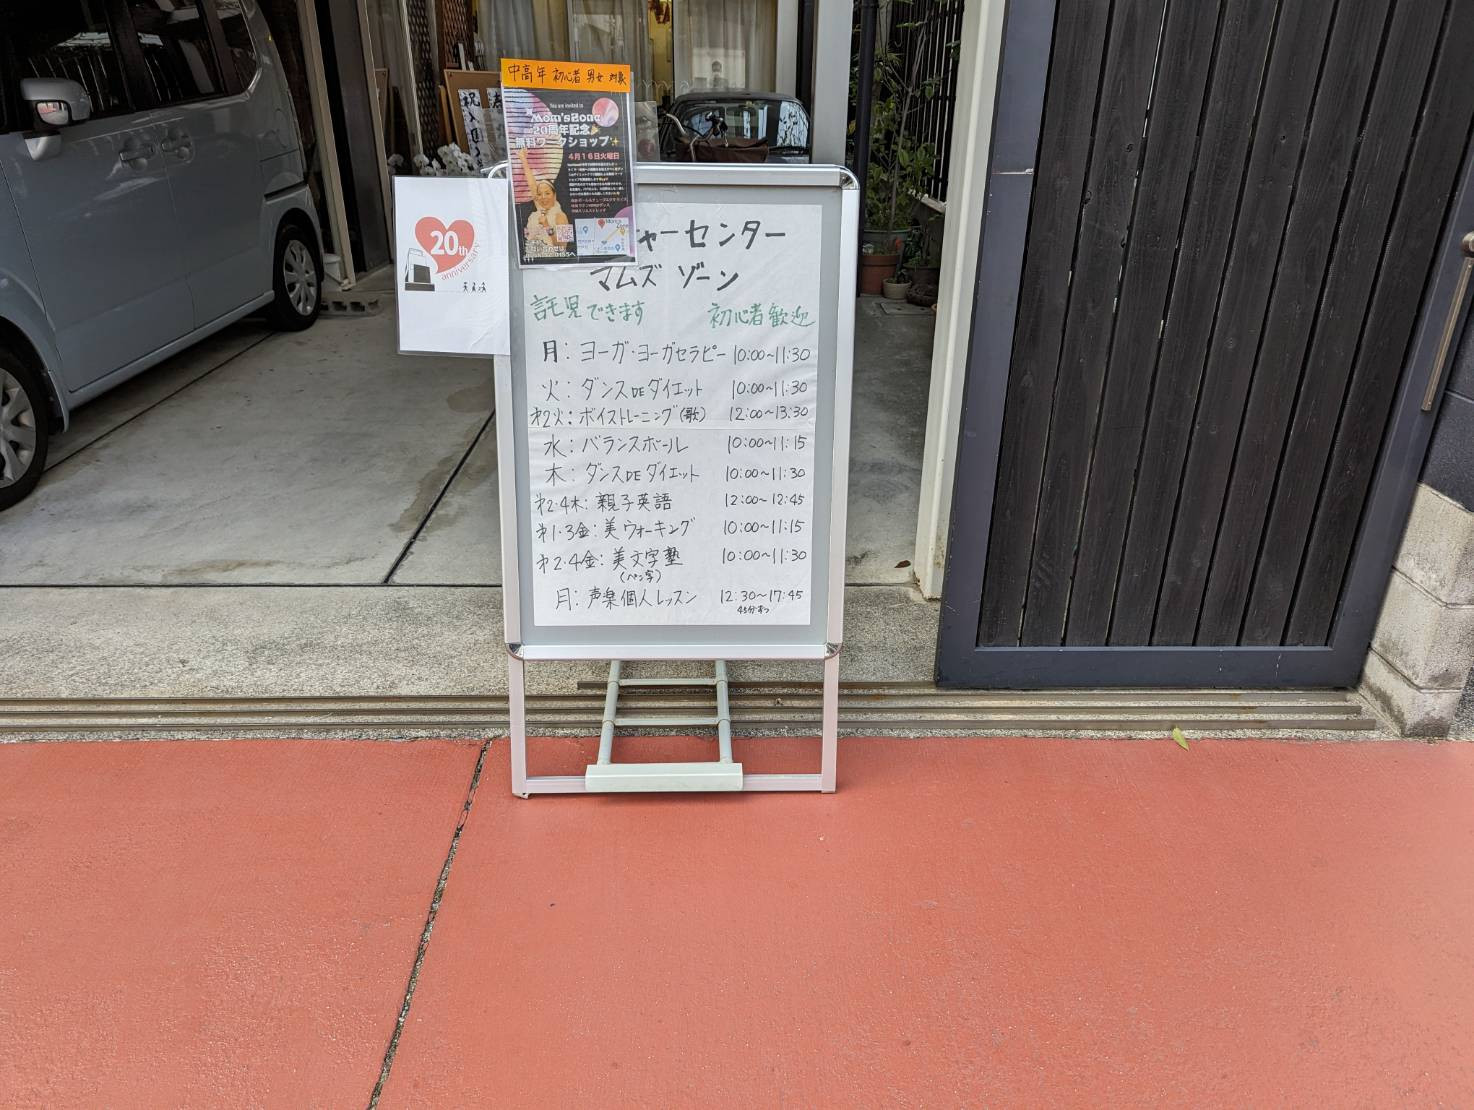 中高年 初心者 男女 対象
You are invited to
Mom'sZone
20周年記念
無料ワークショップ
4月16日火曜日
20th
anniversary
チャーセンター
マムズ ゾーン
託児できます 初心者歓迎
月: ヨーガ・ヨーガセラピー 10:00~11:30
火: ダンスDEダイエット 10:00~11:30
才2火: ボイストレーニング(歌) 12:00~13:30
水: バランスボール 10:00~11:15
木: ダンスDEダイエット 10:00~11:30
才2.4木: 親子英語 12:00~12:45
才1・3金: 美ウォーキング 10:00~11:15
才2.4金: 美文字塾 10:00~11:30
(ペン字)
月: 声楽個人レッスン 12:30~17:45
45分ずつ